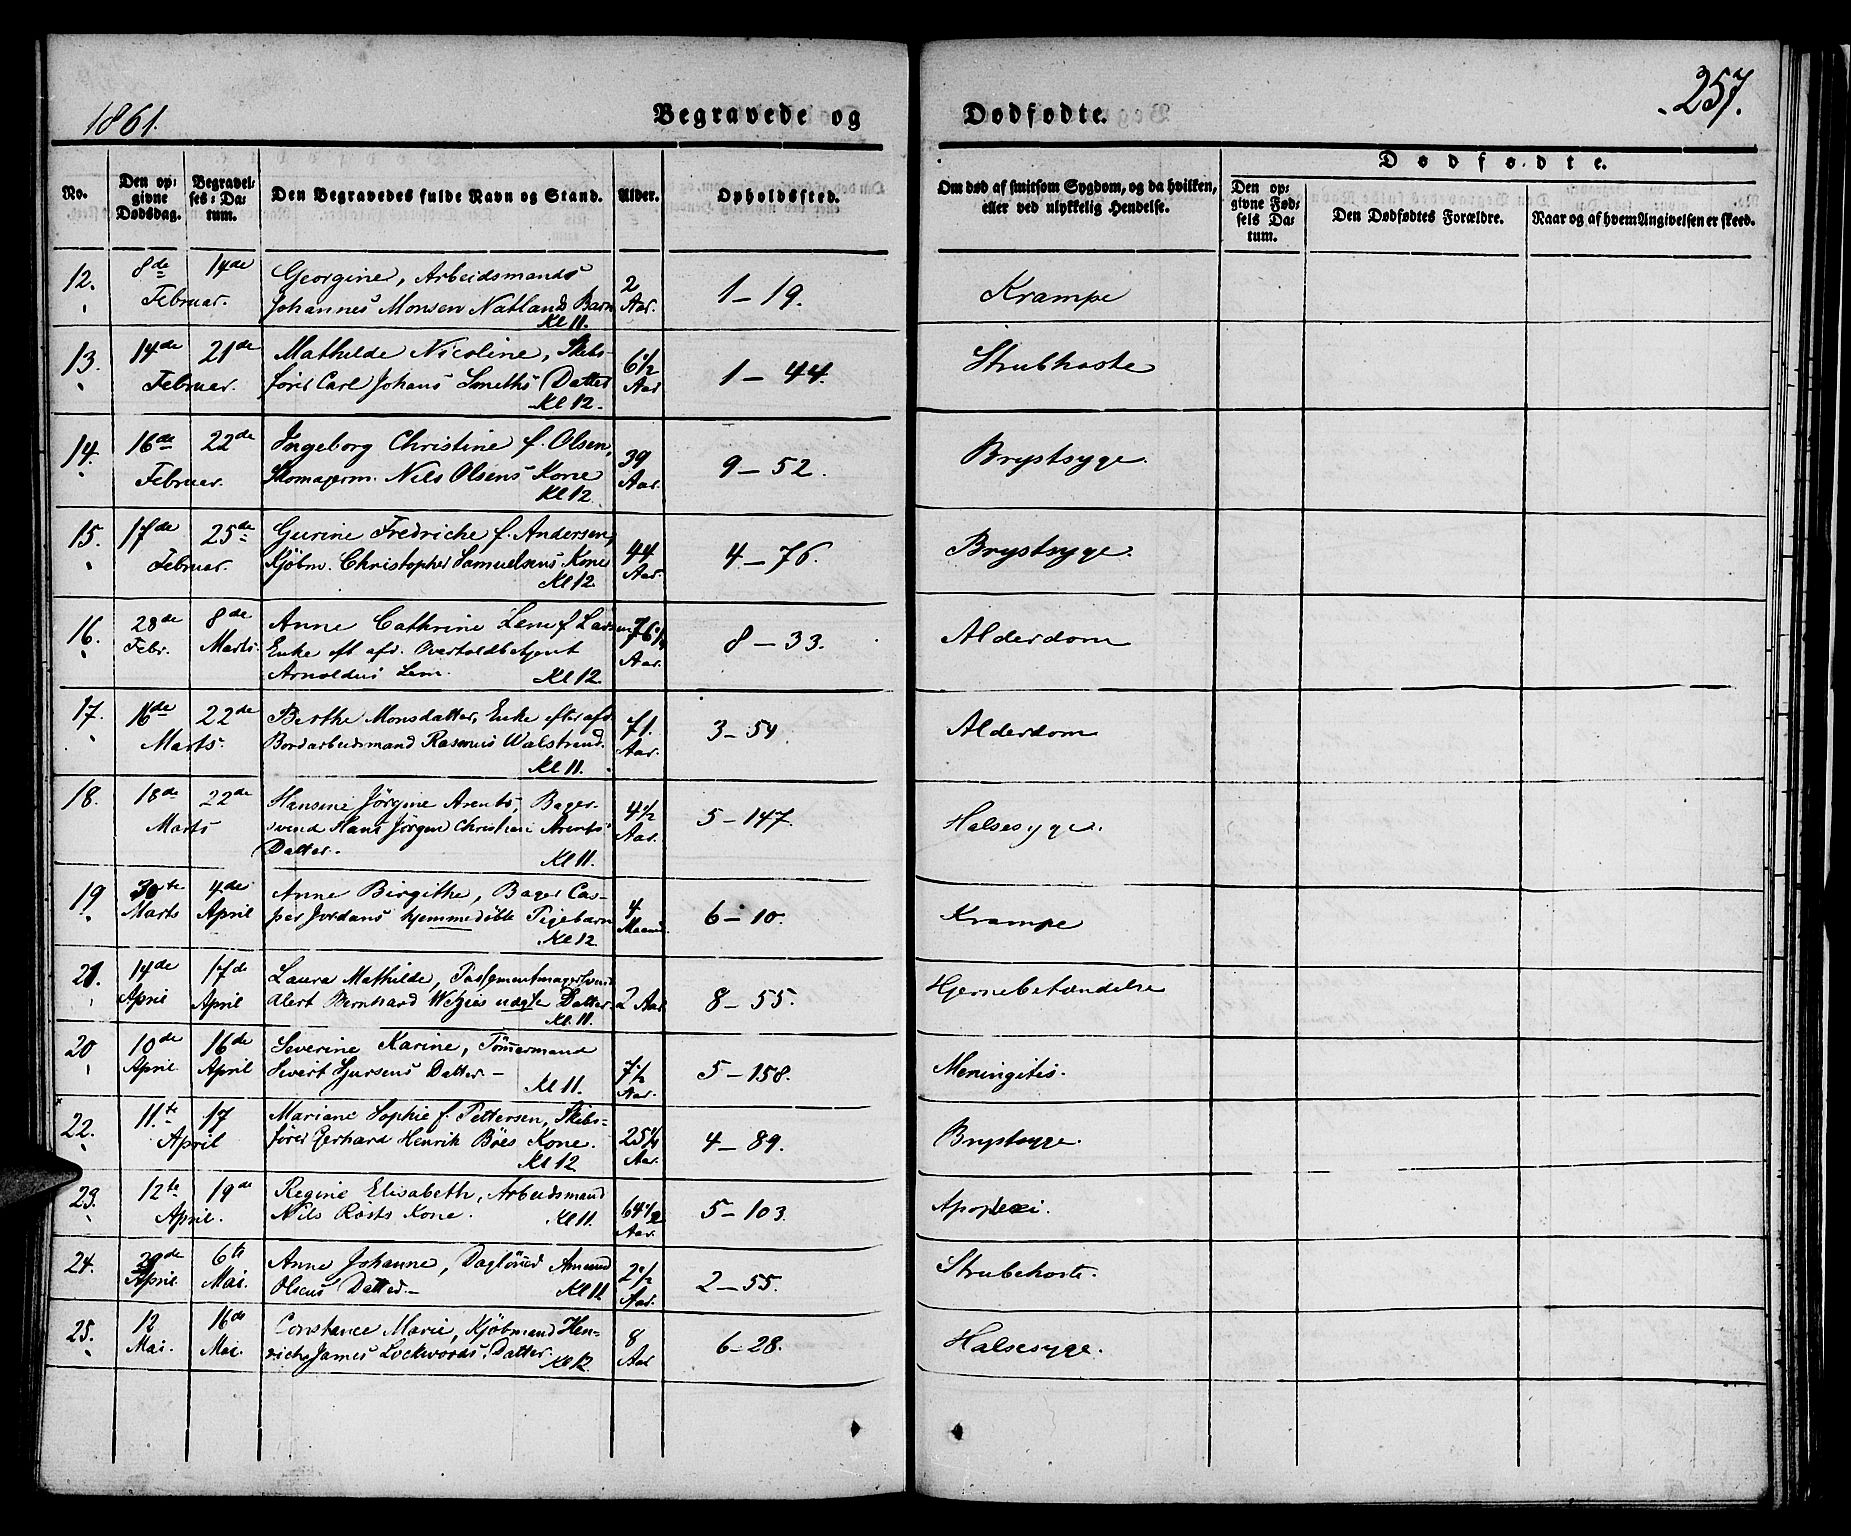 1861.
Begravede og Dødfødte.
257.
No.
Den opgivne Dødsdag.
Begravelses-Datum.
Den Begravedes fulde Navn og Stand.
Alder.
Opholdssted.
Om død af smitsom Sygdom, og da hvilken, eller ved ulykkelig Hendelse.
Dødfødte.
Den opgivne Fødsels Datum.
Den Dødfødtes Forældre.
Naar og af hvem Angivelsen er skeed.
12. 8de 14de Georgine, Arbeidsmands 2 1 – 19. Krampe
Februar. Johannes Monsen Natlands Barn Aar.
Kl 11.
13. 14de 21de Mathilde Nicoline, Skibs- 6 1/2 1 – 44. Strubhoste
Februar. fører Carl Johans Smeths Datter Aar
Kl 12.
14. 16de 22de Ingeborg Christine f. Olsen, 39 9 – 52. Brystsyge.
Februar. Skomagerm. Nils Olsens Kone Aar.
Kl 12.
15. 17de 25de Gurine Fredriche f. Andersen, 44 4 – 76. Brystsyge.
Februar. Kjøbm. Christopher Samuelsens Kone Aar.
Kl 12.
16. 28de 8de Anne Cathrine Lem f Larsen 76 1/2 8 – 33. Alderdom
Febr. Marts. Enke eft afd. Overtoldbetjent Aar.
Arnoldus Lem. Kl 12.
17. 16de 22de Berthe Monsdatter, Enke efter afd 71. 3 – 54. Alderdom
Marts. Bordarbeidsmand Rasmus Walstrand. Aar.
Kl 11.
18. 18de 22de Hansine Jörgine Arents, Bager- 4 1/2 5 – 147. Halsesyge.
Marts svend Hans Jörgen Christian Arents Aar.
Datter. Kl 11.
19 30te 4de Anne Birgithe, Bager Cas- 4 6 – 10. Krampe
Marts April per Jordans hjemmedöbte Pigebarn Maaned
Kl 12.
21. 14de 17de Laura Mathilde, Possementmagersvend 8 – 55. Hjernebetændelse
April April Alert Bernhard uægte Datter. 2 Aar
Kl. 11.
20 10de 16de Severine Karine, Tömmermand 7 1/2 5 – 158. Meningitis.
April. April Sivert Datter. – Kl 11. Aar.
22. 11te 17 Mariane Sophie f. Pettersen, Skibs- 25 1/4 4 – 89. Brystsyge.
April fører Gerhard Henrik Böes Kone. Aar.
Kl 12
23. 12te 19de Regine Elisabeth, Arbeidsmand 64 1/2 5 – 103. Apoplexi.
April. Nils Rosts Kone. Kl 11. Aar.
24. 6te Anne Johanne, Daglönner Amund 2 1/2 2 – 55. Strubehoste.
April Mai. Olsens Datter. – Kl 11 Aar.
25. 12 16de Constance Marie, Kjöbmand Hen- 8 6 – 28. Halsesyge.
Mai. Mai. richs James Lockwoods Datter. Aar
Kl 12.